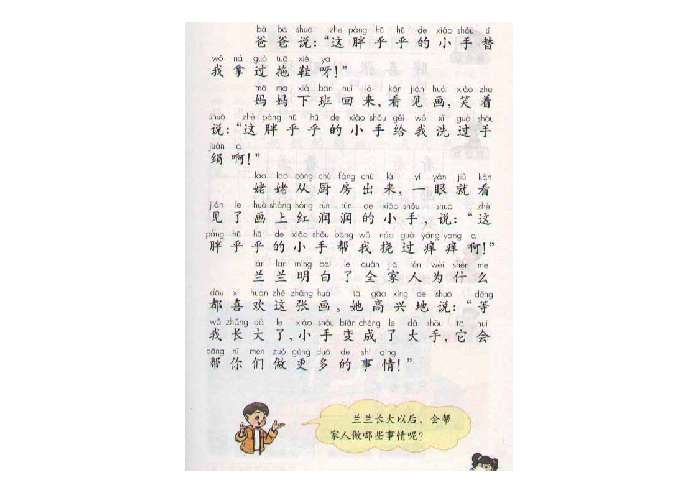 bà ba shuō zhè pàng hū hū de xiǎo shǒu tì
爸爸说:“这胖乎乎的小手替
wǒ ná guò tuō xié ya
我拿过拖鞋呀!”
mā ma xià bān huí lái kàn jiàn huà xiào zhe
妈妈下班回来,看见画,笑着
shuō zhè pàng hū hū de xiǎo shǒu gěi wǒ xǐ guò shǒu
说:“这胖乎乎的小手给我洗过手
juàn a
绢啊!”
lǎo lao cóng chú fáng chū lái yì yǎn jiù kàn
姥姥从厨房出来,一眼就看
jiàn le huà shàng hóng rùn rùn de xiǎo shǒu shuō zhè
见了画上红润润的小手,说:“这
pàng hū hū de xiǎo shǒu bāng wǒ náo guò yǎng yang a
胖乎乎的小手帮我挠过痒痒啊!”
lán lan míng bai le quán jiā rén wèi shén me
兰兰明白了全家人为什么
dōu xǐ huan zhè zhāng huà tā gāo xìng de shuō děng
都喜欢这张画,她高兴地说:“等
wǒ zhǎng dà le xiǎo shǒu biàn chéng le dà shǒu tā huì
我长大了,小手变成了大手,它会
bāng nǐ men zuò gèng duō de shì qing
帮你们做更多的事情!”
兰兰长大以后,会帮
家人做哪些事情呢?